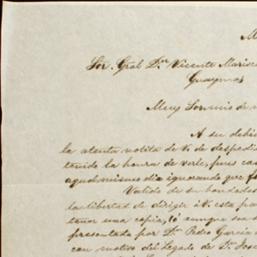 M
Sor. Gral Dn Vicente Maris
Guaymas
Muy Sor mio de m
A su debi
la atenta notita de V. de despedi
tenido la honra de verle, pues ca
aquel mismo dia ignorando que f
Valido de su bondades
la libertad de dirigir á V. esta par
tener una copia, y aunque sea
presentada por Dn Pedro Garcia
con motivo del Legado de Dn Jose